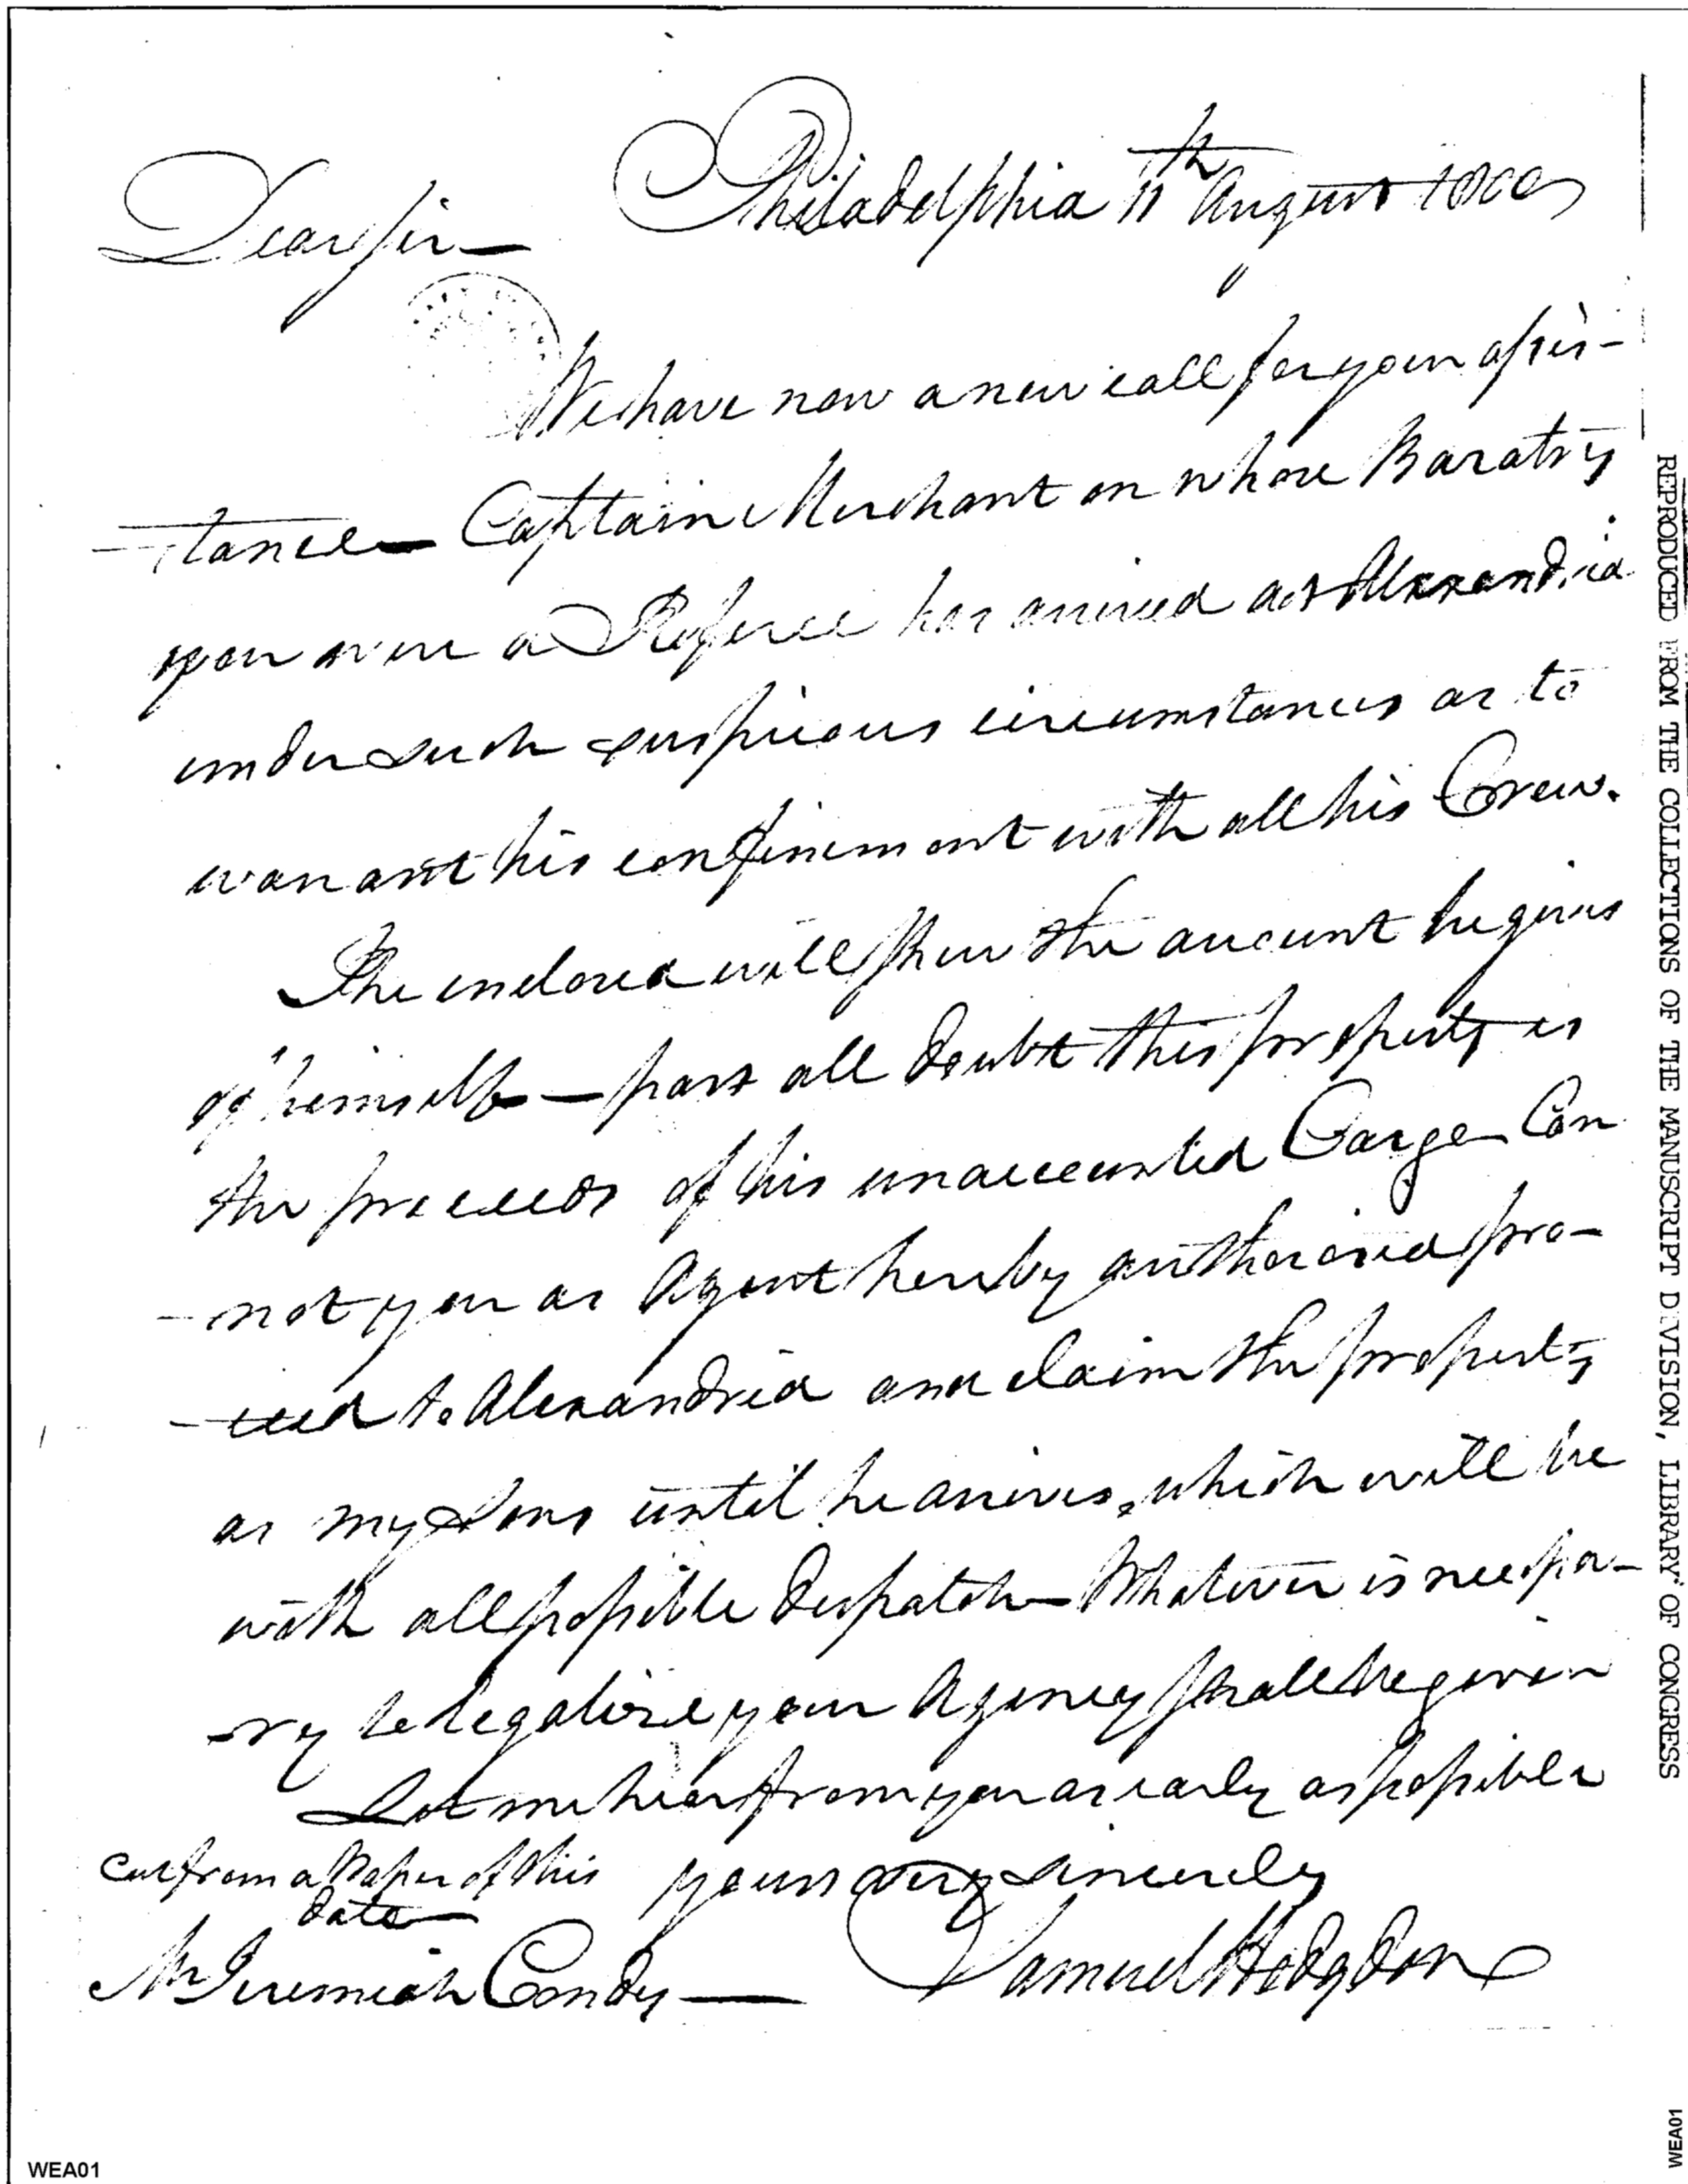 Philadelphia 11th August 1800
Dear Sir —
We have now a new call for your assis-
-tance — Captain Merchant on whose Baratry
you were a Referee has arrived at Alexandria
under such suspicious circumstances as to
warrant his confinement with all his Crew.
The inclosed will shew the account he gives
of himself — past all doubt this property is
the proceeds of his unaccounted Cargo — Can
-not you as Agent hereby authorised pro-
-ceed to Alexandria and claim the property
as my Sons until he arives, which will be
with all possible dispatch — Whatever is necessa-
-ry to legalize your Agency shall be given
Let me hear from you as early as possible
Cut from a Paper of this
date —
yours very sincerely
Samuel Hodgdon
Mr Jeremiah Condy —
REPRODUCED FROM THE COLLECTIONS OF THE MANUSCRIPT DIVISION, LIBRARY OF CONGRESS
WEA01
WEA01